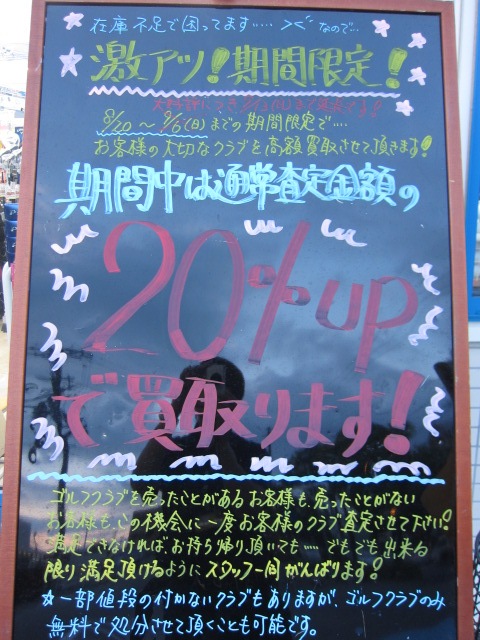 在庫不足で困ってます…‥ ><なので…
激アツ!期間限定!
大好評につき 9/13(日)まで延長する!
8/20 〜 9/6(日)までの期間限定で‥‥
お客様の大切なクラブを高額買取させて頂きます!
期間中は通常査定金額の
20%UP
で買取ります!
ゴルフクラブを売ったことがあるお客様も、売ったことがない
お客様も、この機会に一度お客様のクラブ査定させて下さい!
満足できなければ、お持ち帰り頂いても‥‥ でもでも出来る
限り満足頂けるようにスタッフ一同がんばります!
☆一部値段の付かないクラブもありますが、ゴルフクラブのみ
無料で処分させて頂くことも可能です。